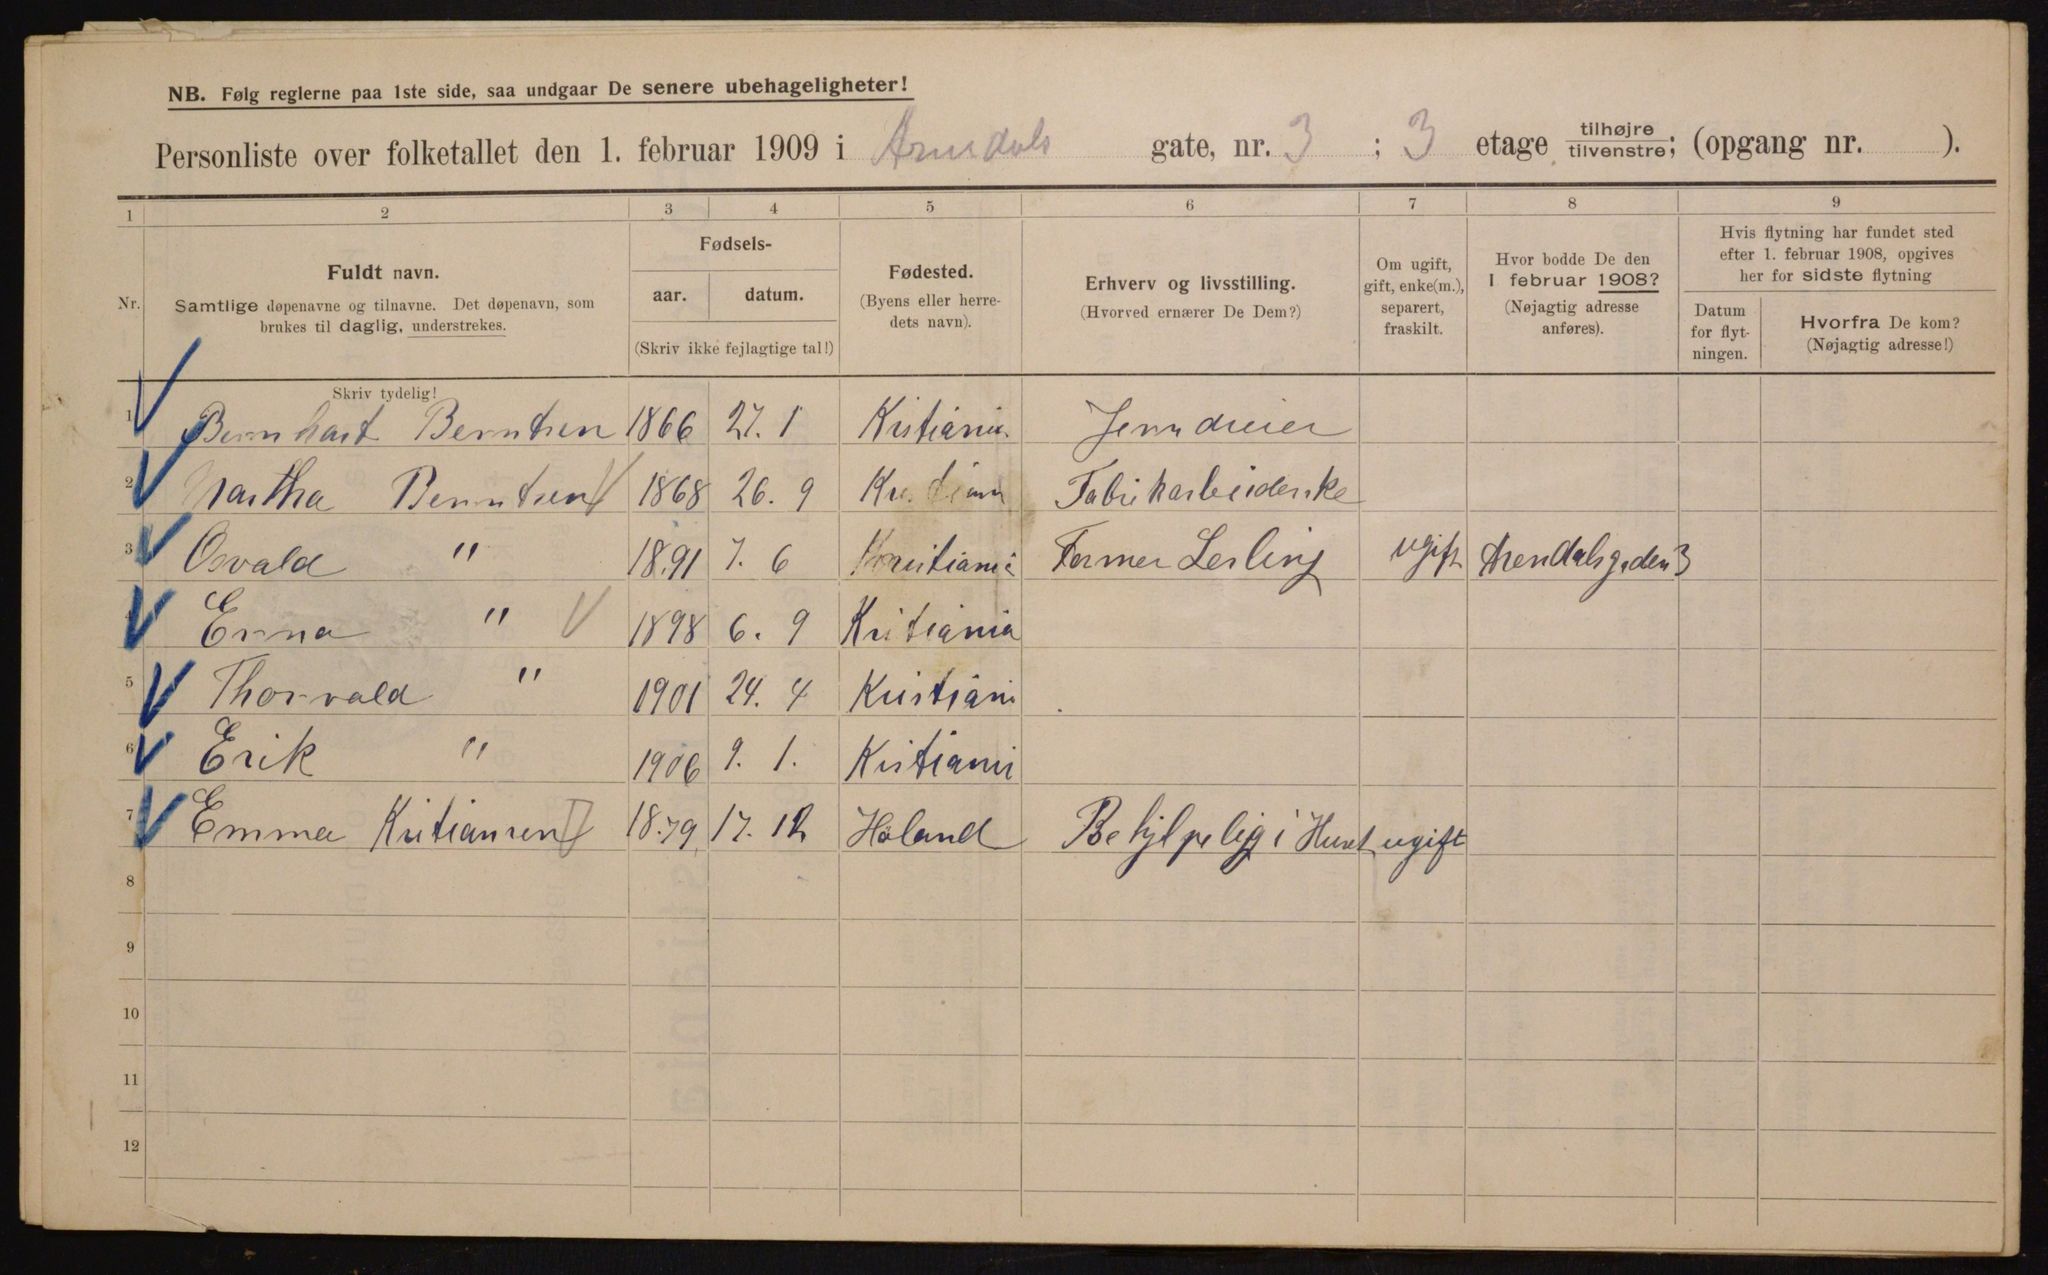 NB. Følg reglerne paa 1ste side, saa undgaar De senere ubehageligheter!
Personliste over folketallet den 1. februar 1909 i Arendals gate, nr. 3 ; 3 etage tilhøjre/tilvenstre; (opgang nr. ).
1 2 3 4 5 6 7 8 9
Nr.
Fuldt navn.
Samtlige døpenavne og tilnavne. Det døpenavn, som
brukes til daglig, understrekes.
Skriv tydelig!
Fødsels-
aar. datum.
(Skriv ikke fejlagtige tal!)
Fødested.
(Byens eller herre-
dets navn).
Erhverv og livsstilling.
(Hvorved ernærer De Dem?)
Om ugift,
gift, enke(m.),
separert,
fraskilt.
Hvor bodde De den
1 februar 1908?
(Nøjagtig adresse
anføres).
Hvis flytning har fundet sted
efter 1. februar 1908, opgives
her for sidste flytning
Datum
for flyt-
ningen.
Hvorfra De kom?
(Nøjagtig adresse!)
1 Bernhart Berntsen 1866 27. 1 Kristiania Jerndreier
2 Martha Berntsen 1868 26. 9 Fabrikarbeiderske
3 Osvald " 1891 7. 6 Kristiania Former Lerling ugift Arendalsgaden 3
4 Erna " 1898 6. 9 Kritiania
5 Thorvald " 1901 24. 4 Kristiani
6 Erik " 1906 9. 1. Kristiani
7 Emma Kritiansen 1879 17. 12 Høland Behjelpelig i Huset ugift
8
9
10
11
12